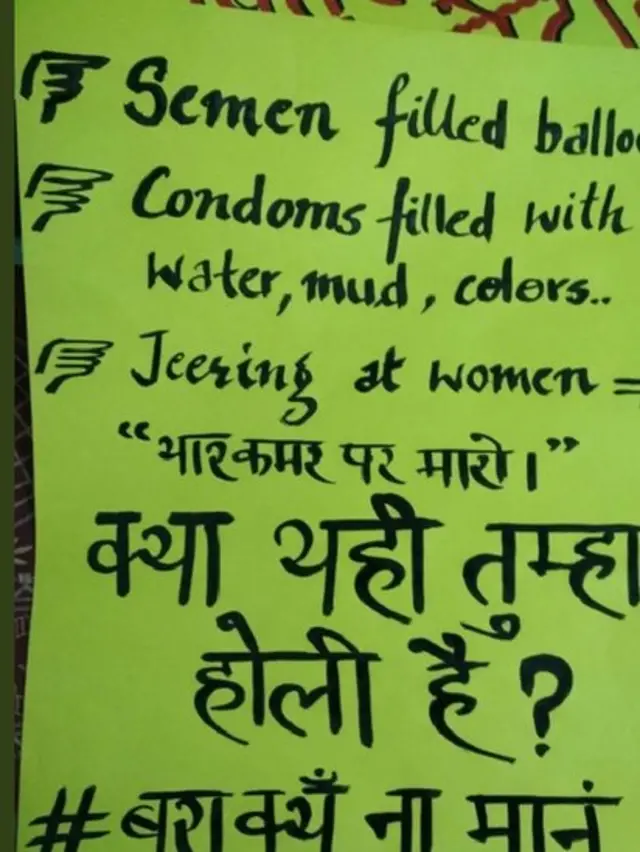 Semen filled balloo
Condoms filled with
Water, mud, colors..
Jeering at women =
“यारकमर पर मारो।”
क्या यही तुम्हा
होली है?
#बुरा क्यूँ ना मानं